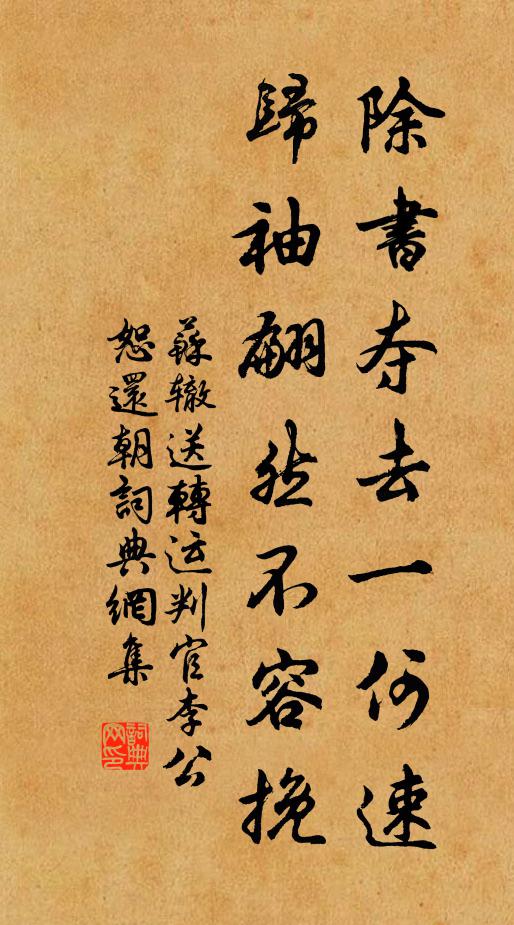 除書夺去一何速
歸袖翩然不容挽
蘇辙送轉运判官李公
恕還朝詞典網集
詞典
网印